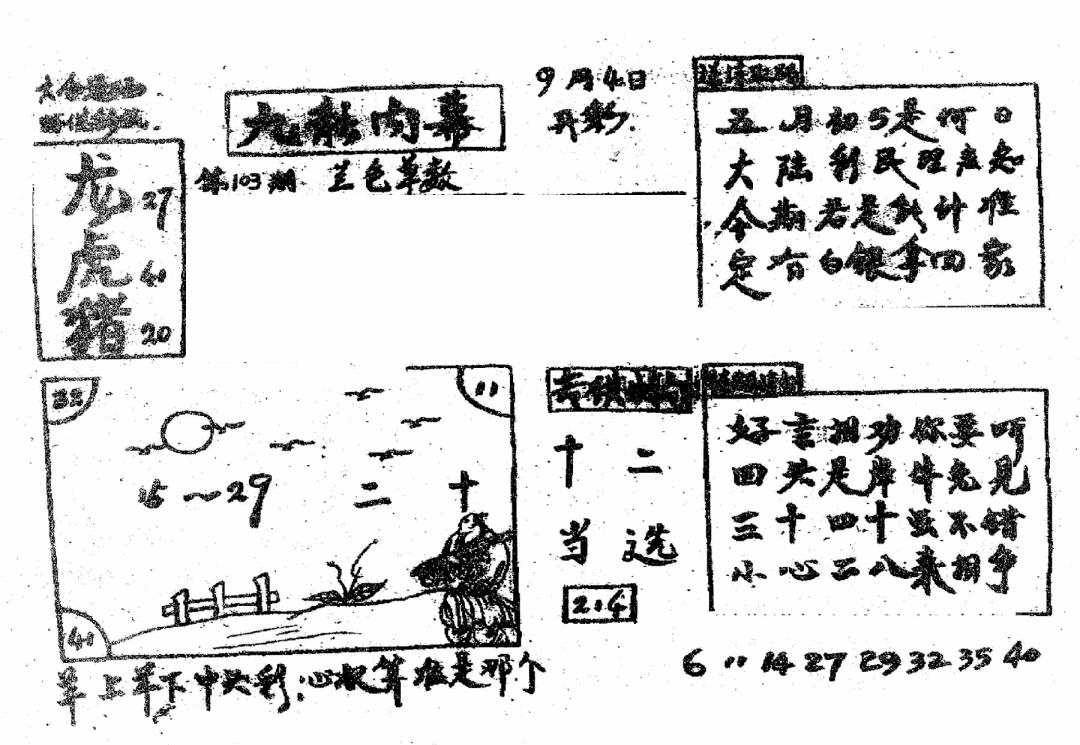 九龙内幕
9月4日
开彩.
第103期 兰色单数
龙27
虎41
猪20
五月初5是何日
大陆利民理应知
今期若是能计准
定有白银拿回家
32
11
15～29
二 十
41
羊上羊下中头彩,心报算准是那个
十二
当选
2.4
好言相功你要听
回头是岸牛兔见
三十四十虽不错
小心二八来相争
6 11 14 27 29 32 35 40